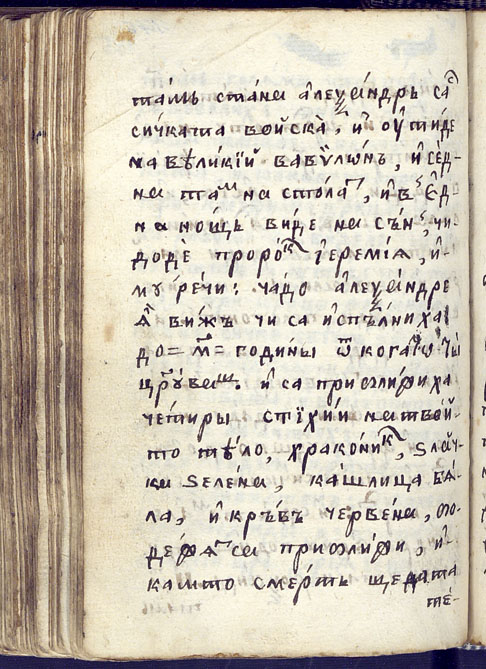 тамь стана алеѯандрь са
сичката войска, и ѹтиде
на великїй вавѷлѡнь, и сед-
на тамъ на стола, и в ед-
на нощь виде на сьнъ, чи
доде пророкъ їеремїа, и
му речи: чадо алеѯандре
вижъ чи са исплъниха
до = м҃ = години ѿ
царувашъ и са приближиха
четири стїхїи на твой-
то тѣло, храконикъ, ѕлач-
ка ѕелена, кашлица бѧ-
ла, и кръвъ червена,
са приближи, и
камто смерть щедата
те-